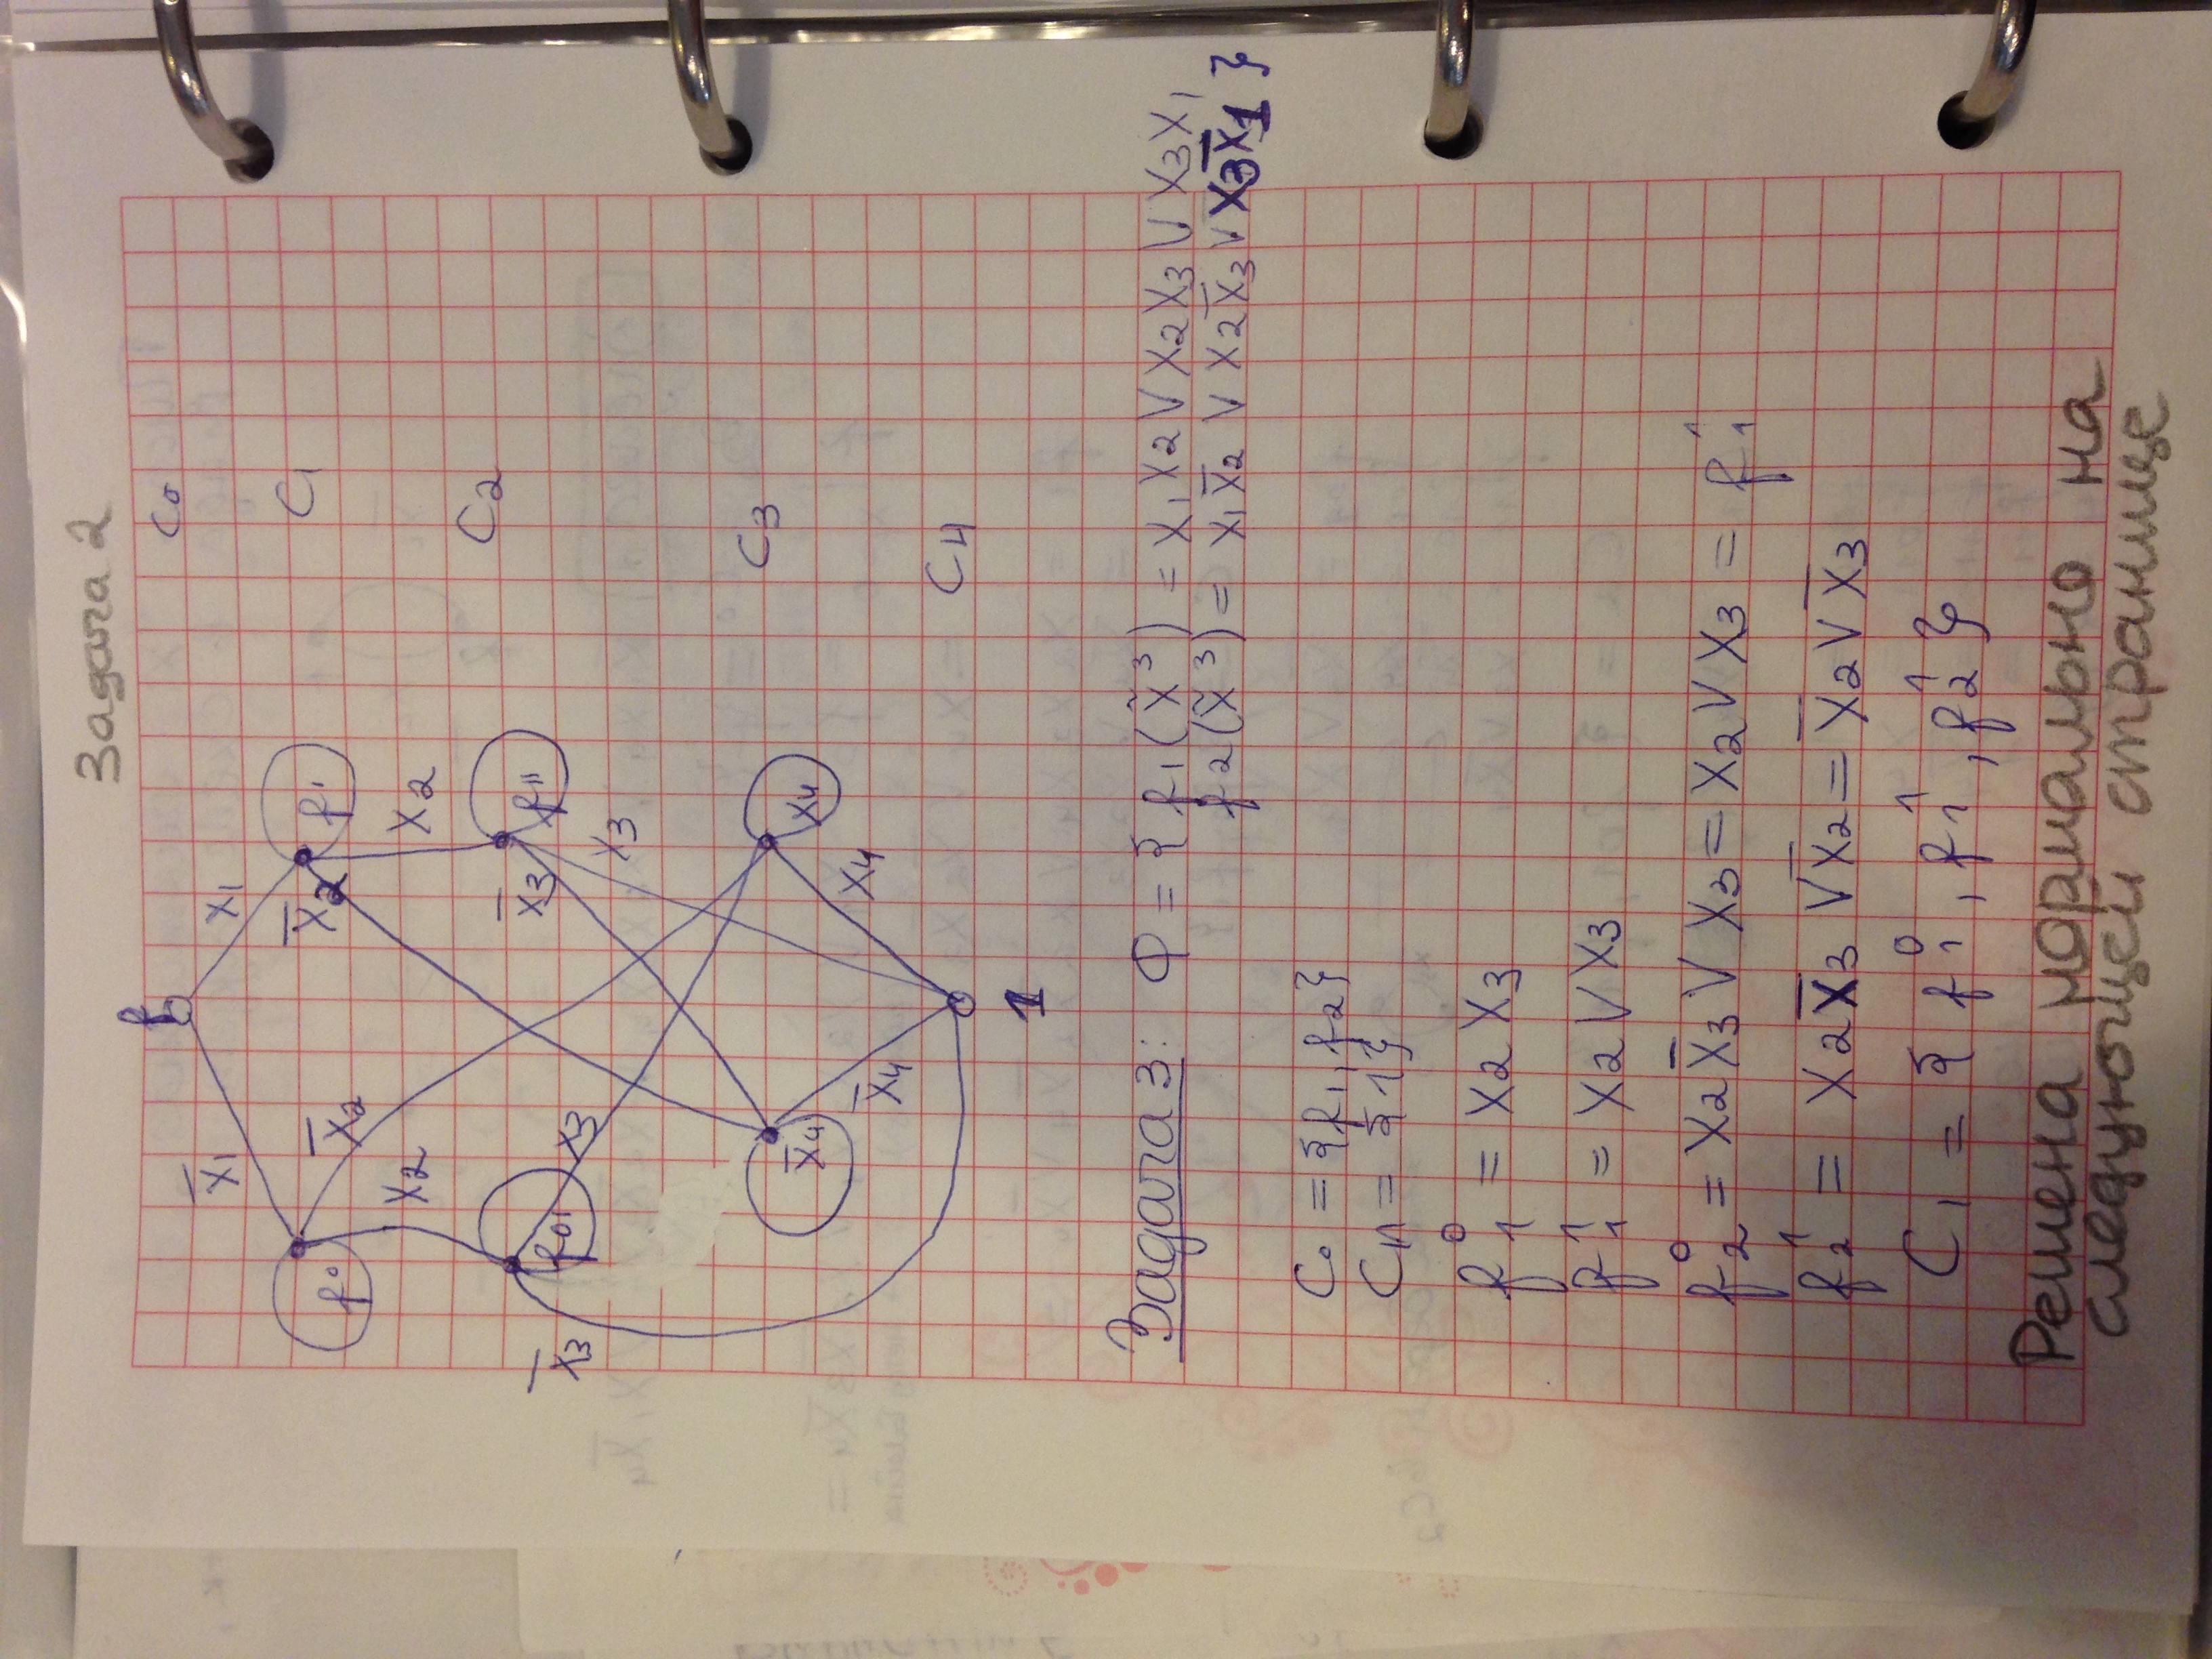 Задача 2
f C0
x̄1 x1 C1
f⁰ x̄2 x̄2 f¹
x2 x2 C2
f⁰¹ x̄3 f¹¹
x̄3 x3 x3
x̄4 x4 C3
x̄4 x4
C4
1
Задача 3: Φ = { f1(x̃³) = x1x2 V x2x3 V x3x1
f2(x̃³) = x1x̄2 V x2x̄3 V x3x̄1 }
C0 = {f1, f2}
Cn = {1}
f1⁰ = x2x3
f1¹ = x2 V x3
f2⁰ = x2x̄3 V x3 = x2 V x3 = f1¹
f2¹ = x2x̄3 V x̄2 = x̄2 V x̄3
C1 = { f1⁰, f1¹, f2¹ }
Решена нормально на
следующей странице